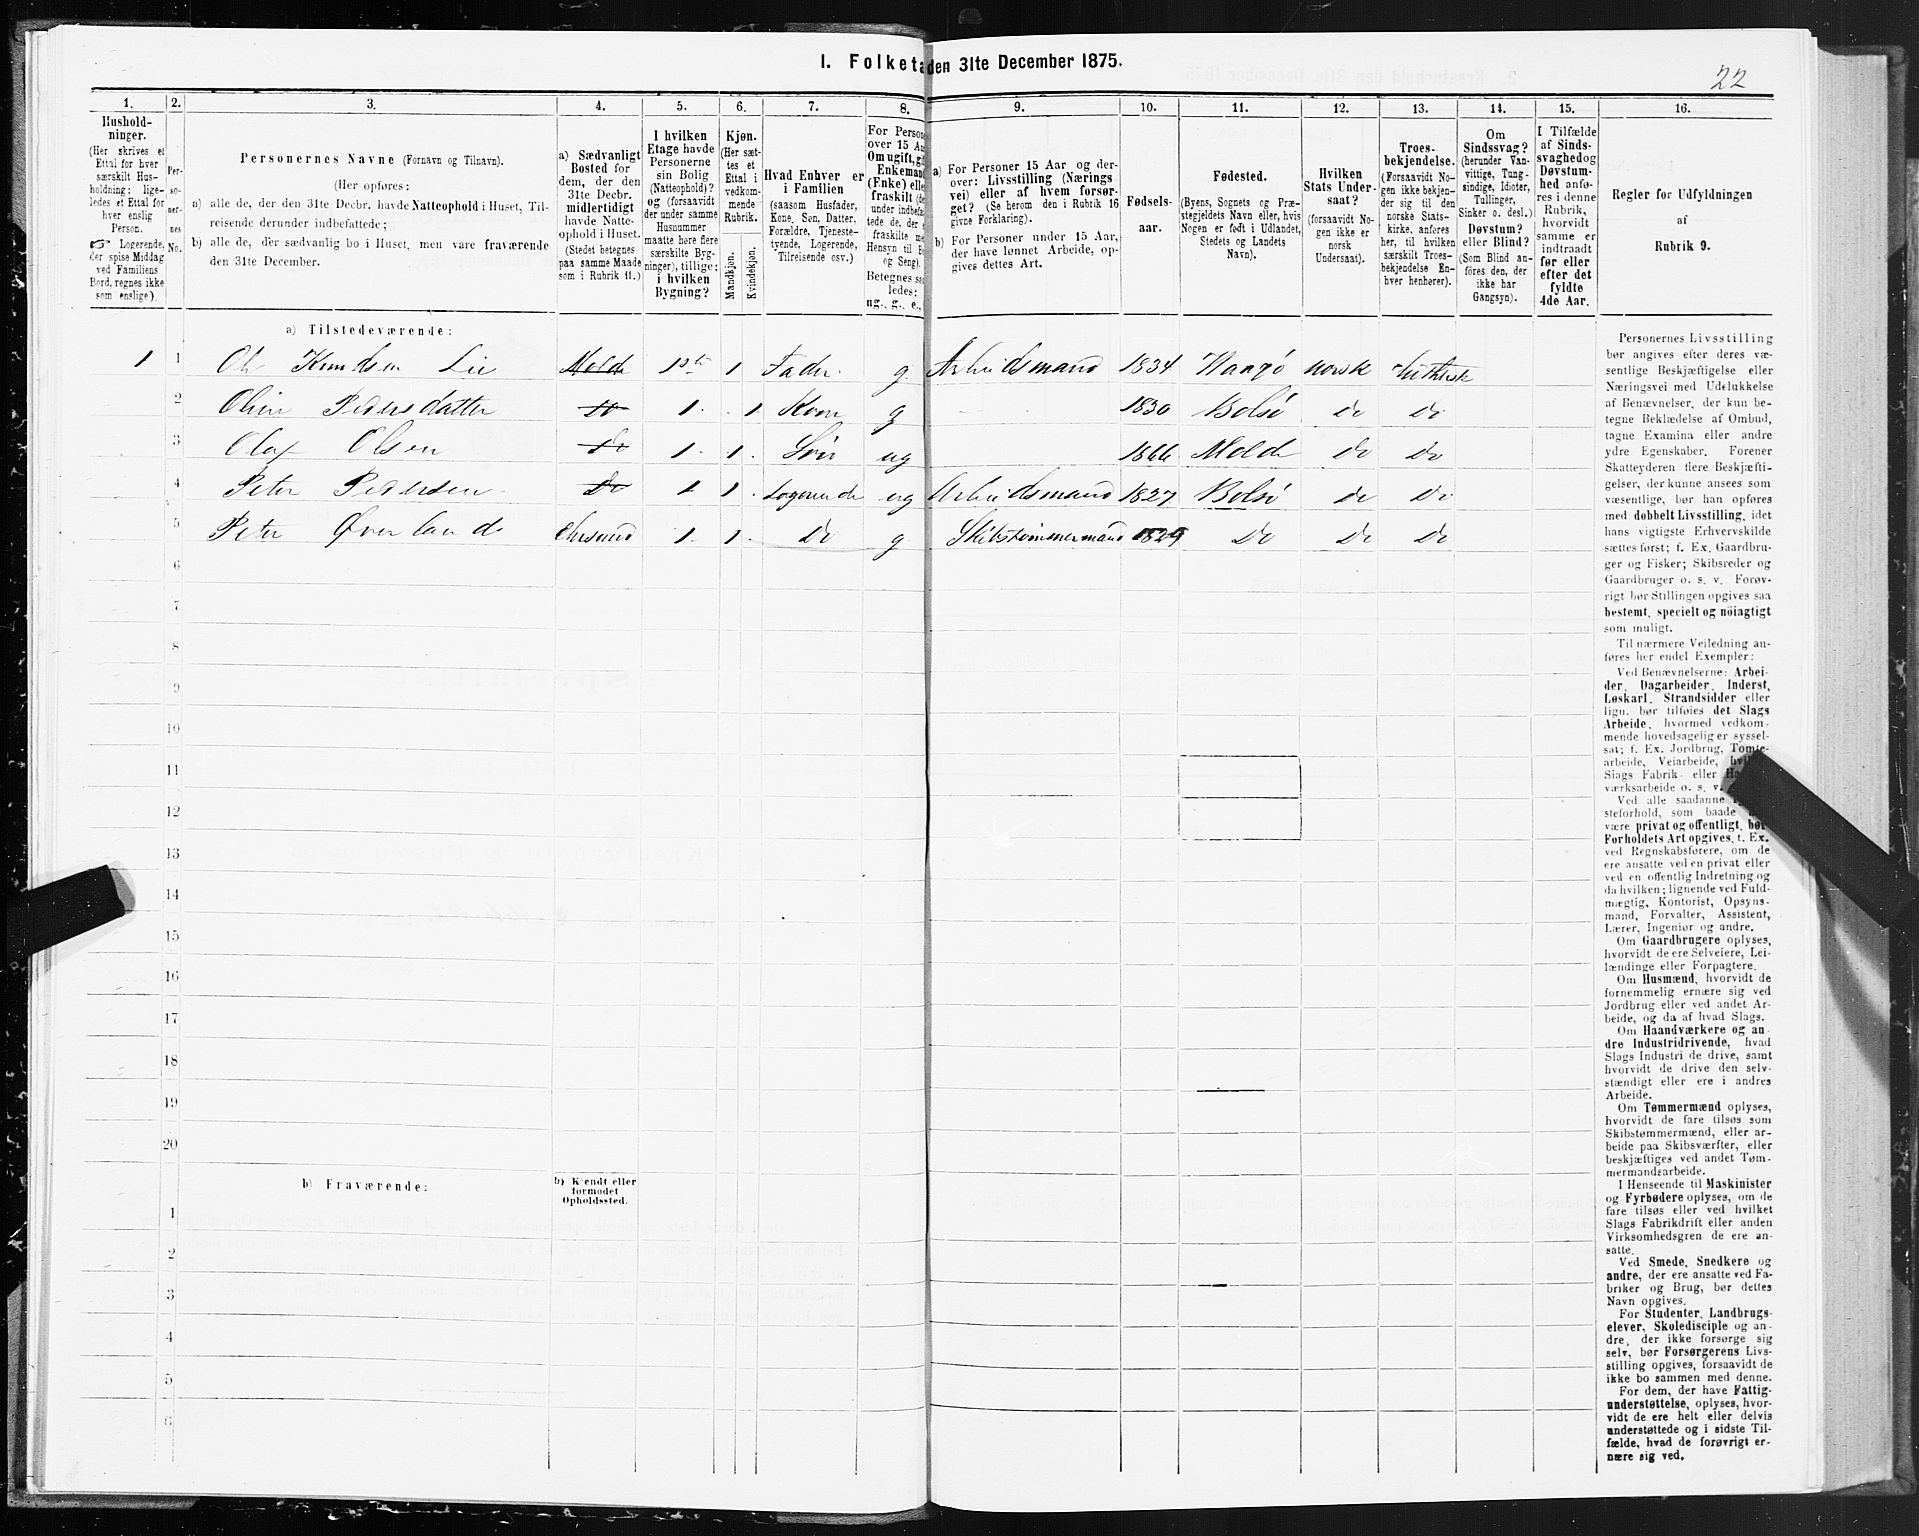 I. Folketa den 31te December 1875.
22
1. 2. 3. 4. 5. 6. 7. 8. 9. 10. 11. 12. 13. 14. 15. 16.
Hushold-
ninger.
(Her skrives et
Ettal for hver
særskilt Hus-
holdning; lige-
ledes et Ettal for
hver enslig
Person.
☞ Logerende,
der spise Middag
ved Familiens
Bord, regnes ikke
som enslige).
Per-
so-
ner-
nes
No.
Personernes Navne (Fornavn og Tilnavn).
(Her opføres:
a) alle de, der den 31te Decbr. havde Natteophold i Huset, Til-
reisende derunder indbefattede;
b) alle de, der sædvanlig bo i Huset, men vare fraværende
den 31te December.
a) Sædvanligt
Bosted for
dem, der den
31te Decbr.
midlertidigt
havde Natte-
ophold i Huset.
(Stedet betegnes
paa samme Maade
som i Rubrik 11.)
I hvilken
Etage havde
Personerne
sin Bolig
(Natteophold)?
og (forsaavidt
der under samme
Husnummer
maatte høre flere
særskilte Byg-
ninger), tillige:
i hvilken
Bygning?
Kjøn.
(Her sæt-
tes et
Ettal i
vedkom-
mende
Rubrik.
Mandkjøn.
Kvindekjøn.
Hvad Enhver er
i Familien
(saasom Husfader,
Kone, Søn, Datter,
Forældre, Tjeneste-
tyende, Logerende,
Tilreisende osv.)
For Persone
over 15 Aa
Om ugift, gi
Enkeman
(Enke) elle
fraskilt (de
under indbef
tede de, der e
fraskilte me
Hensyn til B
og Seng).
Betegnes saa
ledes:
ug., g., e.,
a) For Personer 15 Aar og der-
over: Livsstilling (Nærings
vei) eller af hvem forsør-
get? (Se herom den i Rubrik 16
givne Forklaring).
b) For Personer under 15 Aar,
der have lønnet Arbeide, op-
gives dettes Art.
Fødsels-
aar.
Fødested.
(Byens, Sognets og Præ-
stegjeldets Navn eller, hvis
Nogen er født i Udlandet,
Stedets og Landets
Navn).
Hvilken
Stats Under-
saat?
(forsaavidt No-
gen ikke er
norsk
Undersaat).
Troes-
bekjendelse.
(Forsaavidt No-
gen ikke bekjen-
der sig til den
norske Stats-
kirke, anføres
her, til hvilken
særskilt Troes-
bekjendelse En-
hver henhører).
Om
Sindssvag?
(herunder Van-
vittige, Tung-
sindige, Idioter,
Tullinger,
Sinker o. desl.)
Døvstum?
eller Blind?
(Som Blind an-
føres den, der
ikke har
Gangsyn).
I Tilfælde
af Sinds-
svaghed og
Døvstum-
hed anfø-
res i denne
Rubrik,
hvorvidt
samme er
indtraadt
før eller
efter det
fyldte
4de Aar.
Regler for Udfyldningen
af
Rubrik 9.
a) Tilstedeværende:
1 1 Ole Knudsen Lie Molde 1ste 1 Fader g Arbeidsmand 1834 norsk Luthersk
2 Oline Pedersdatter do 1 1 Kone g 1830 Bolsø do do
3 Olaf Olsen do 1 1 Søn ug 1866 Molde do do
4 Peter Pedersen do 1 1 Logerende ug Arbeidsmand 1827 Bolsø do do
5 Peter Øverlande Chrsund 1 1 do g Skibstømmermand 1829 do do do
6
7
8
9
10
11
12
13
14
15
16
17
18
19
20
b) Fraværende:
b) Kjendt eller
formodet
Opholdssted.
1
2
3
4
5
6
Personernes Livsstilling
bør angives efter deres væ-
sentlige Beskjæftigelse eller
Næringsvei med Udelukkelse
af Benævnelser, der kun be-
tegne Beklædelse af Ombud,
tagne Examina eller andre
ydre Egenskaber. Forener
Skatteyderen flere Beskjæfti-
gelser, der kunne ansees som
væsentlige, bør han opføres
med dobbelt Livsstilling, idet
hans vigtigste Erhvervskilde
sættes først; f. Ex. Gaardbru-
ger og Fisker; Skibsreder og
Gaardbruger o. s. v. Forøv-
rigt bør Stillingen opgives saa
bestemt, specielt og nöiagtigt
som muligt.
Til nærmere Veiledning an-
føres her endel Exempler:
Ved Benævnelserne: Arbei-
der, Dagarbeider, Inderst,
Løskarl, Strandsidder eller
lign. bør tilføies det Slags
Arbeide, hvormed vedkom-
mende hovedsagelig er syssel-
sat; f. Ex. Jordbrug, Tomte-
arbeide, Veiarbeide,
Slags Fabrik- eller
værksarbeide o. s. v.
Ved alle saadanne
steforhold, som baade
være privat og offentligt, bør
Forholdets Art opgives, t. Ex.
ved Regnskabsførere, om de
ere ansatte ved en privat eller
ved en offentlig Indretning og
da hvilken; lignende ved Fuld-
mægtig, Kontorist, Opsyns-
mand, Forvalter, Assistent,
Lærer, Ingeniør og andre.
Om Gaardbrugere oplyses,
hvorvidt de ere Selveiere, Lei-
lændinge eller Forpagtere.
Om Husmænd, hvorvidt de
fornemmelig ernære sig ved
Jordbrug eller ved andet Ar-
beide, og da af hvad Slags.
Om Haandværkere og an-
dre Industridrivende, hvad
Slags Industri de drive, samt
hvorvidt de drive den selv-
stændigt eller ere i andres
Arbeide.
Om Tømmermænd oplyses,
hvorvidt de fare tilsøs som
Skibstømmermænd, eller ar-
beide paa Skibsværfter, eller
beskjæftiges ved andet Tøm-
mermandsarbeide.
I Henseende til Maskinister
og Fyrbødere oplyses, om de
fare tilsøs eller ved hvilket
Slags Fabrikdrift eller anden
Virksomhedsgren de ere an-
satte.
Ved Smede, Snedkere og
andre, der ere ansatte ved Fa-
briker og Brug, bør dettes
Navn opgives.
For Studenter, Landbrugs-
elever, Skoledisciple og an-
dre, der ikke forsørge sig
selv, bør Forsørgerens Livs-
stilling opgives, forsaavidt de
ikke bo sammen med denne.
For dem, der have Fattig-
understøttelse, oplyses, hvor-
vidt de ere helt eller delvis
understøttede og i sidste Til-
fælde, hvad de forøvrigt er-
nære sig ved.